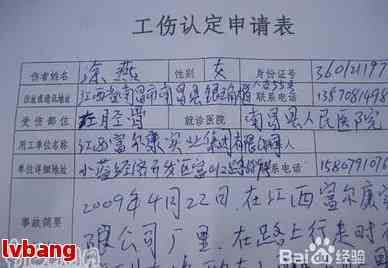 工伤认定申请表
伤者姓名 涂燕 性别 女 身份证号 360121197
住址或通讯地址 江西省南昌市南昌县银 联系电话 1357081498
受伤部位 左胫骨 就诊医院 南昌县人民医院
用工单位名称 江西富尔康实业集团有限公司
单位详细地址 小蓝经济开发区富山 路 联系电话 1580791016
事故简要 2009年4月22日,在江西富尔康实
限公司厂里,在路上行走时
lvbang
Bai 百度经验
lvbang